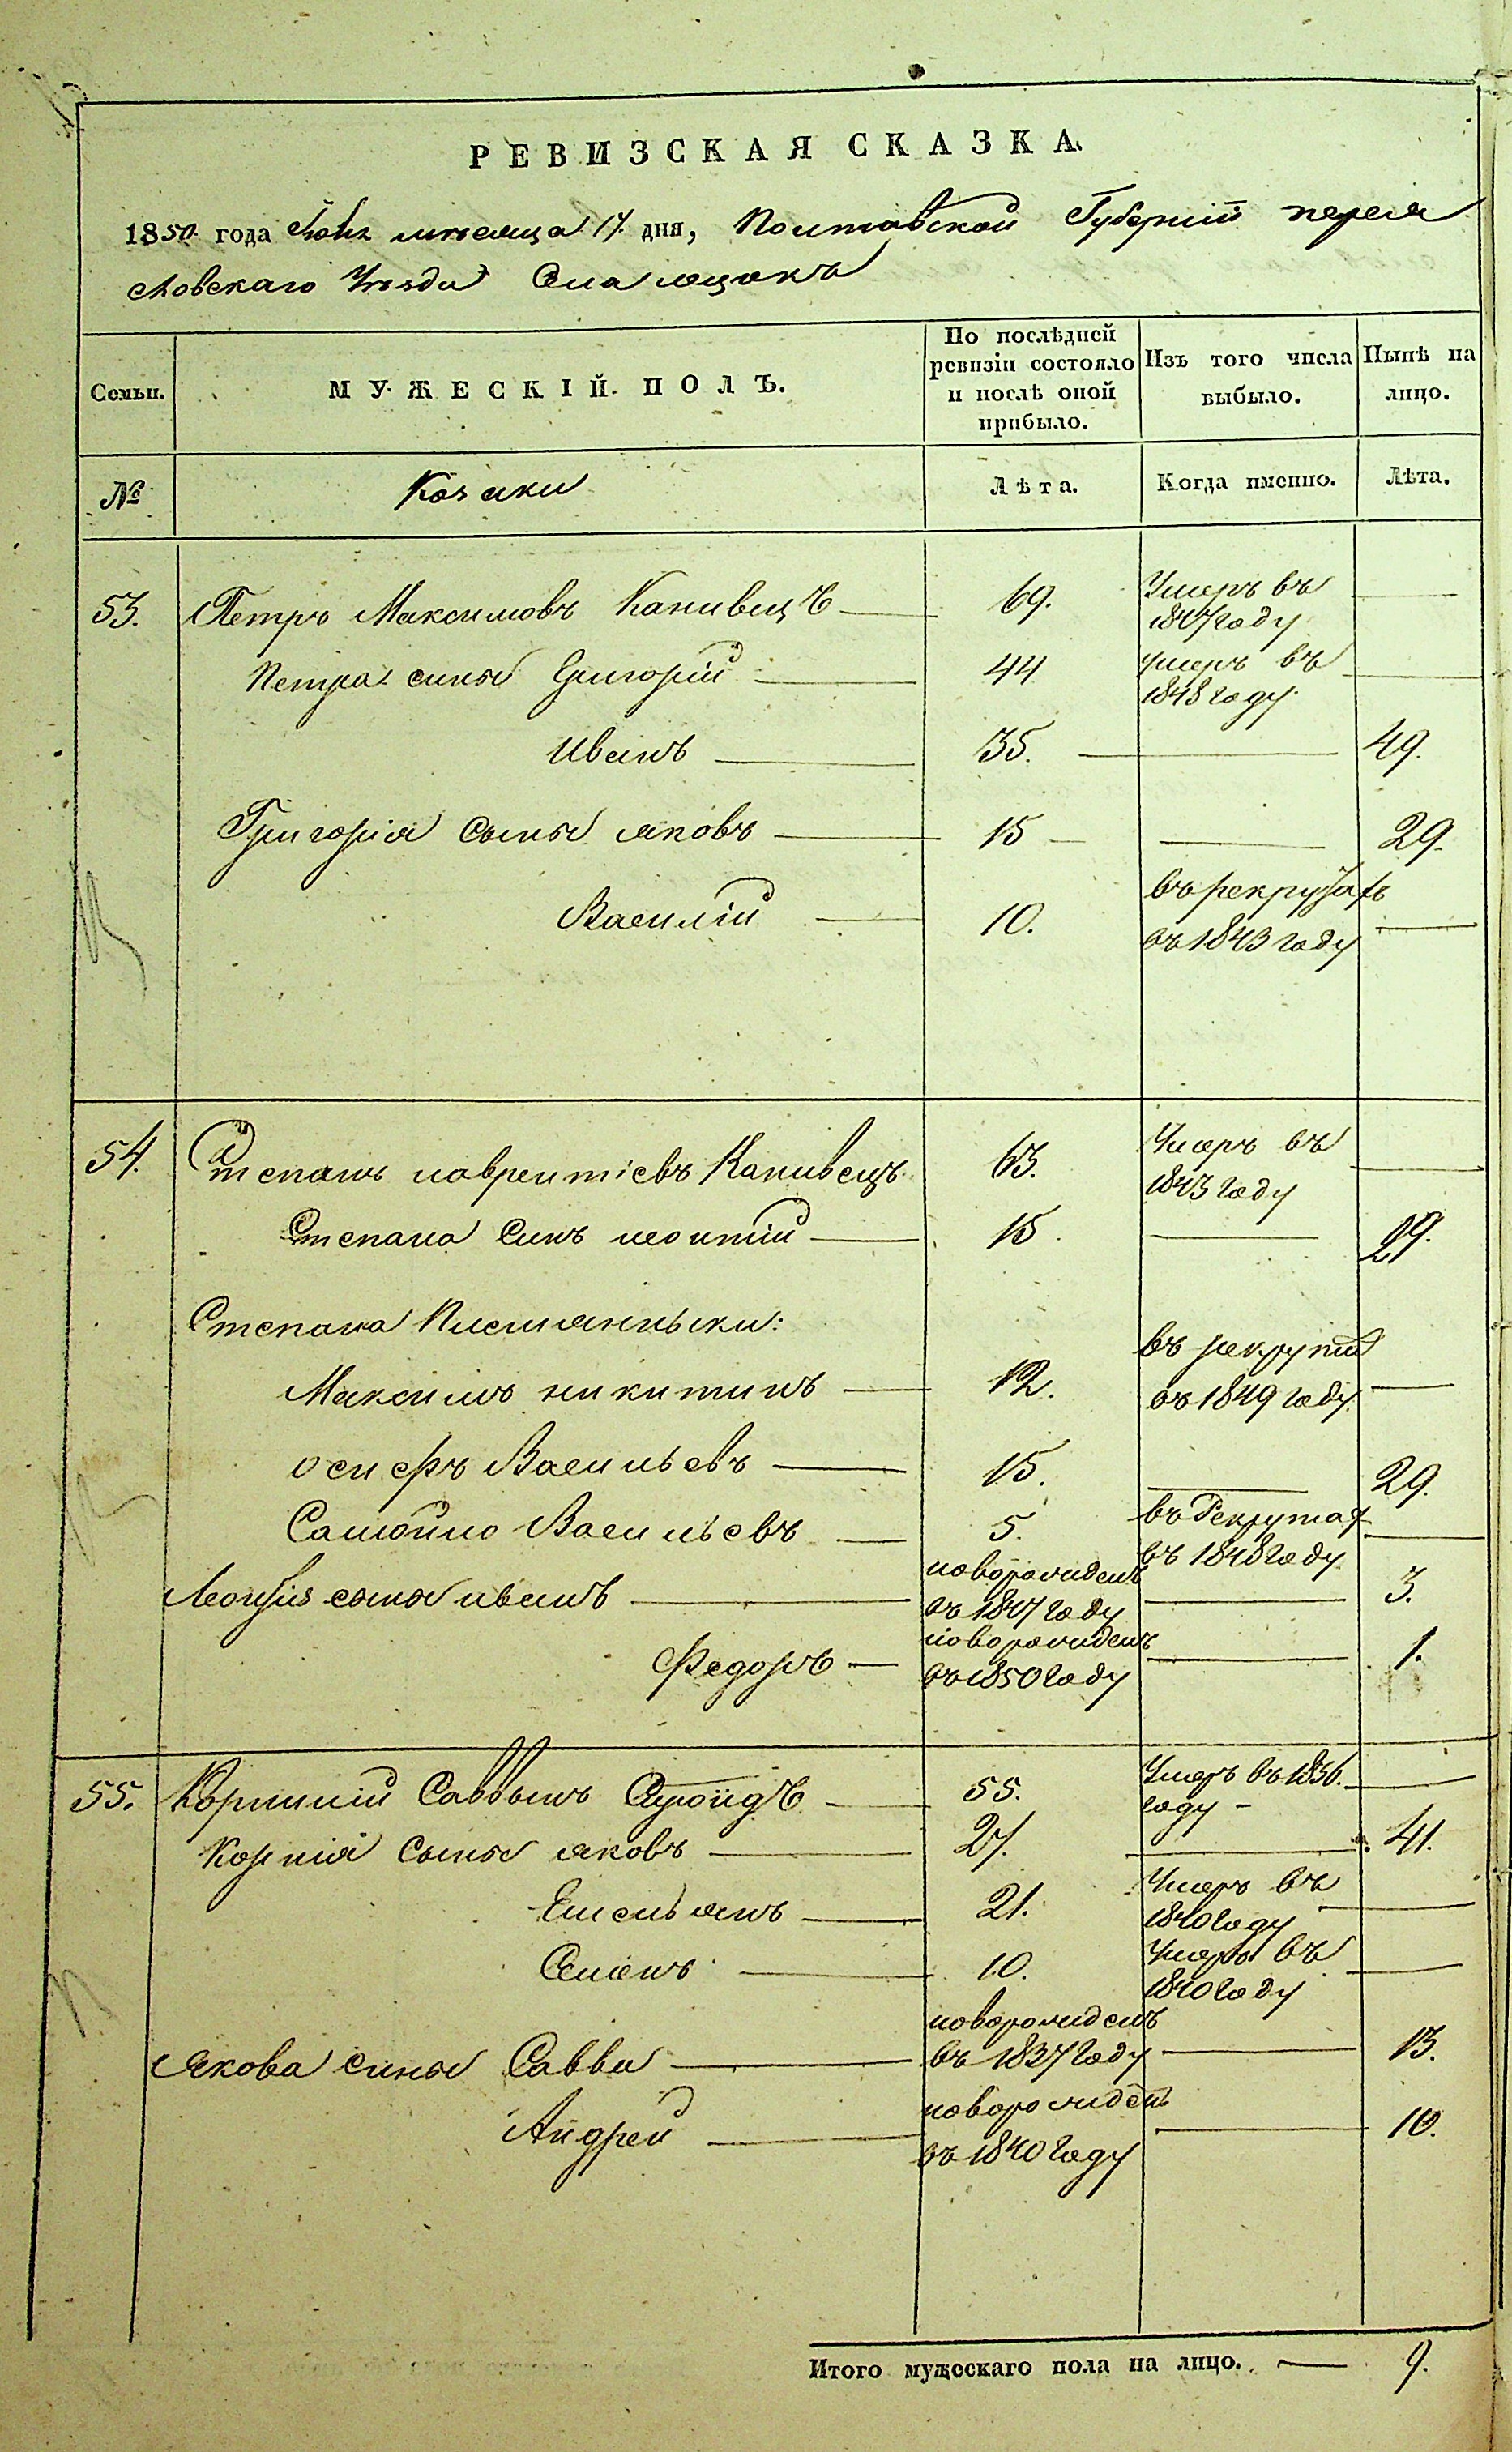 РЕВИЗСКАЯ СКАЗКА
1850 года мѣсяца 17 дня, Полтавской Губерніи переяс
ловскаго Уѣзда
Семьи.
МУЖЕСКІЙ ПОЛЪ.
По послѣдней ревизіи состояло и послѣ оной прибыло.
Изъ того числа выбыло.
Нынѣ на лицо.
№
Козаки
Лѣта.
Когда именно.
Лѣта.
53. Петръ Максимовъ Канивецъ — 69. Умеръ въ 1847 году —
Петра сыны Григорій — 44 умеръ въ 1848 году —
Иванъ — 35. — 49.
Григорія сыны яковъ — 15 — 29.
Василій — 10. въ рекрутахъ въ 1843 году —
54. Степанъ лаврентіевъ Канивецъ 63. Умеръ въ 1843 году —
Степана Синъ леонтій — 15. — 29.
Степана Племянныки:
Максимъ никитинъ — 12. въ рекруты въ 1849 году —
осифъ Васильевъ — 15. — 29.
Самойло Васильевъ — 5. въ Рекрутах въ 1848 году —
Леонтія сыны иванъ — новорожденъ въ 1847 году — 3.
Федоръ — новорожденъ въ 1850 году — 1.
55. Корнилій Саввинъ — 55. Умеръ въ 1836. году —
Корнія Сыны яковъ — 27. — 41.
Емельянъ — 21. Умеръ въ 1840 году —
Семенъ — 10. Умеръ въ 1840 году —
Якова сыны Савва — новорожденъ въ 1837 году — 13.
Андрей — новорожденъ въ 1840 году — 10.
Итого мужескаго пола на лицо. — 9.